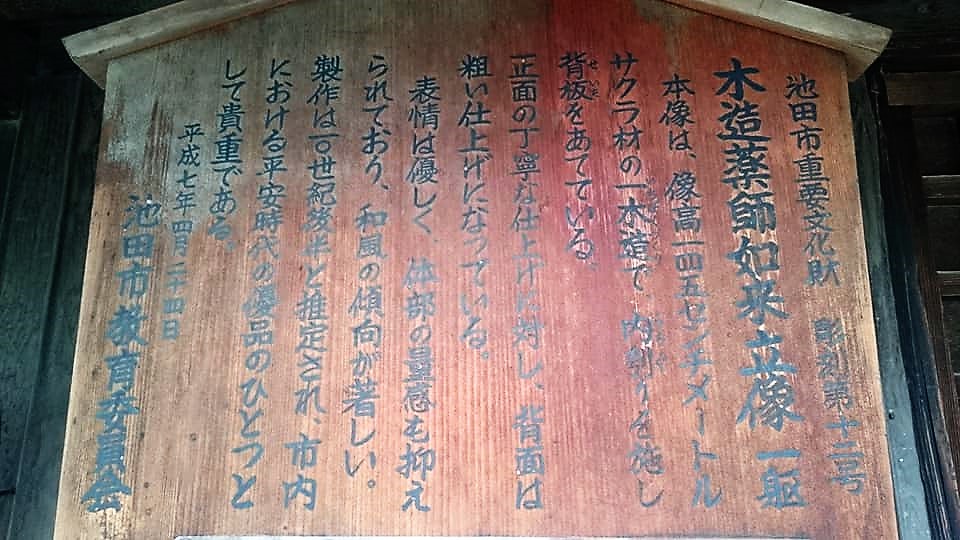 池田市重要文化財 彫刻第十二号
木造薬師如来立像 一躯
本像は、像高一四五センチメートル
サクラ材の一木造で、内刳りを施し
背板をあてている。
せいた
正面の丁寧な仕上げに対し、背面は
粗い仕上げになっている。
表情は優しく、体部の量感も抑え
られており、和風の傾向が著しい。
製作は一〇世紀後半と推定され、市内
における平安時代の優品のひとつと
して貴重である。
平成七年四月二十四日
池田市教育委員会